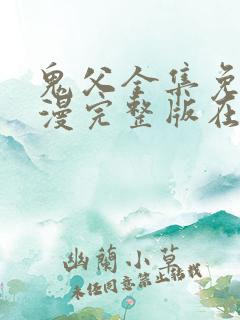 鬼父全集免
漫完整版在
幽蘭小草
未经同意禁止转载